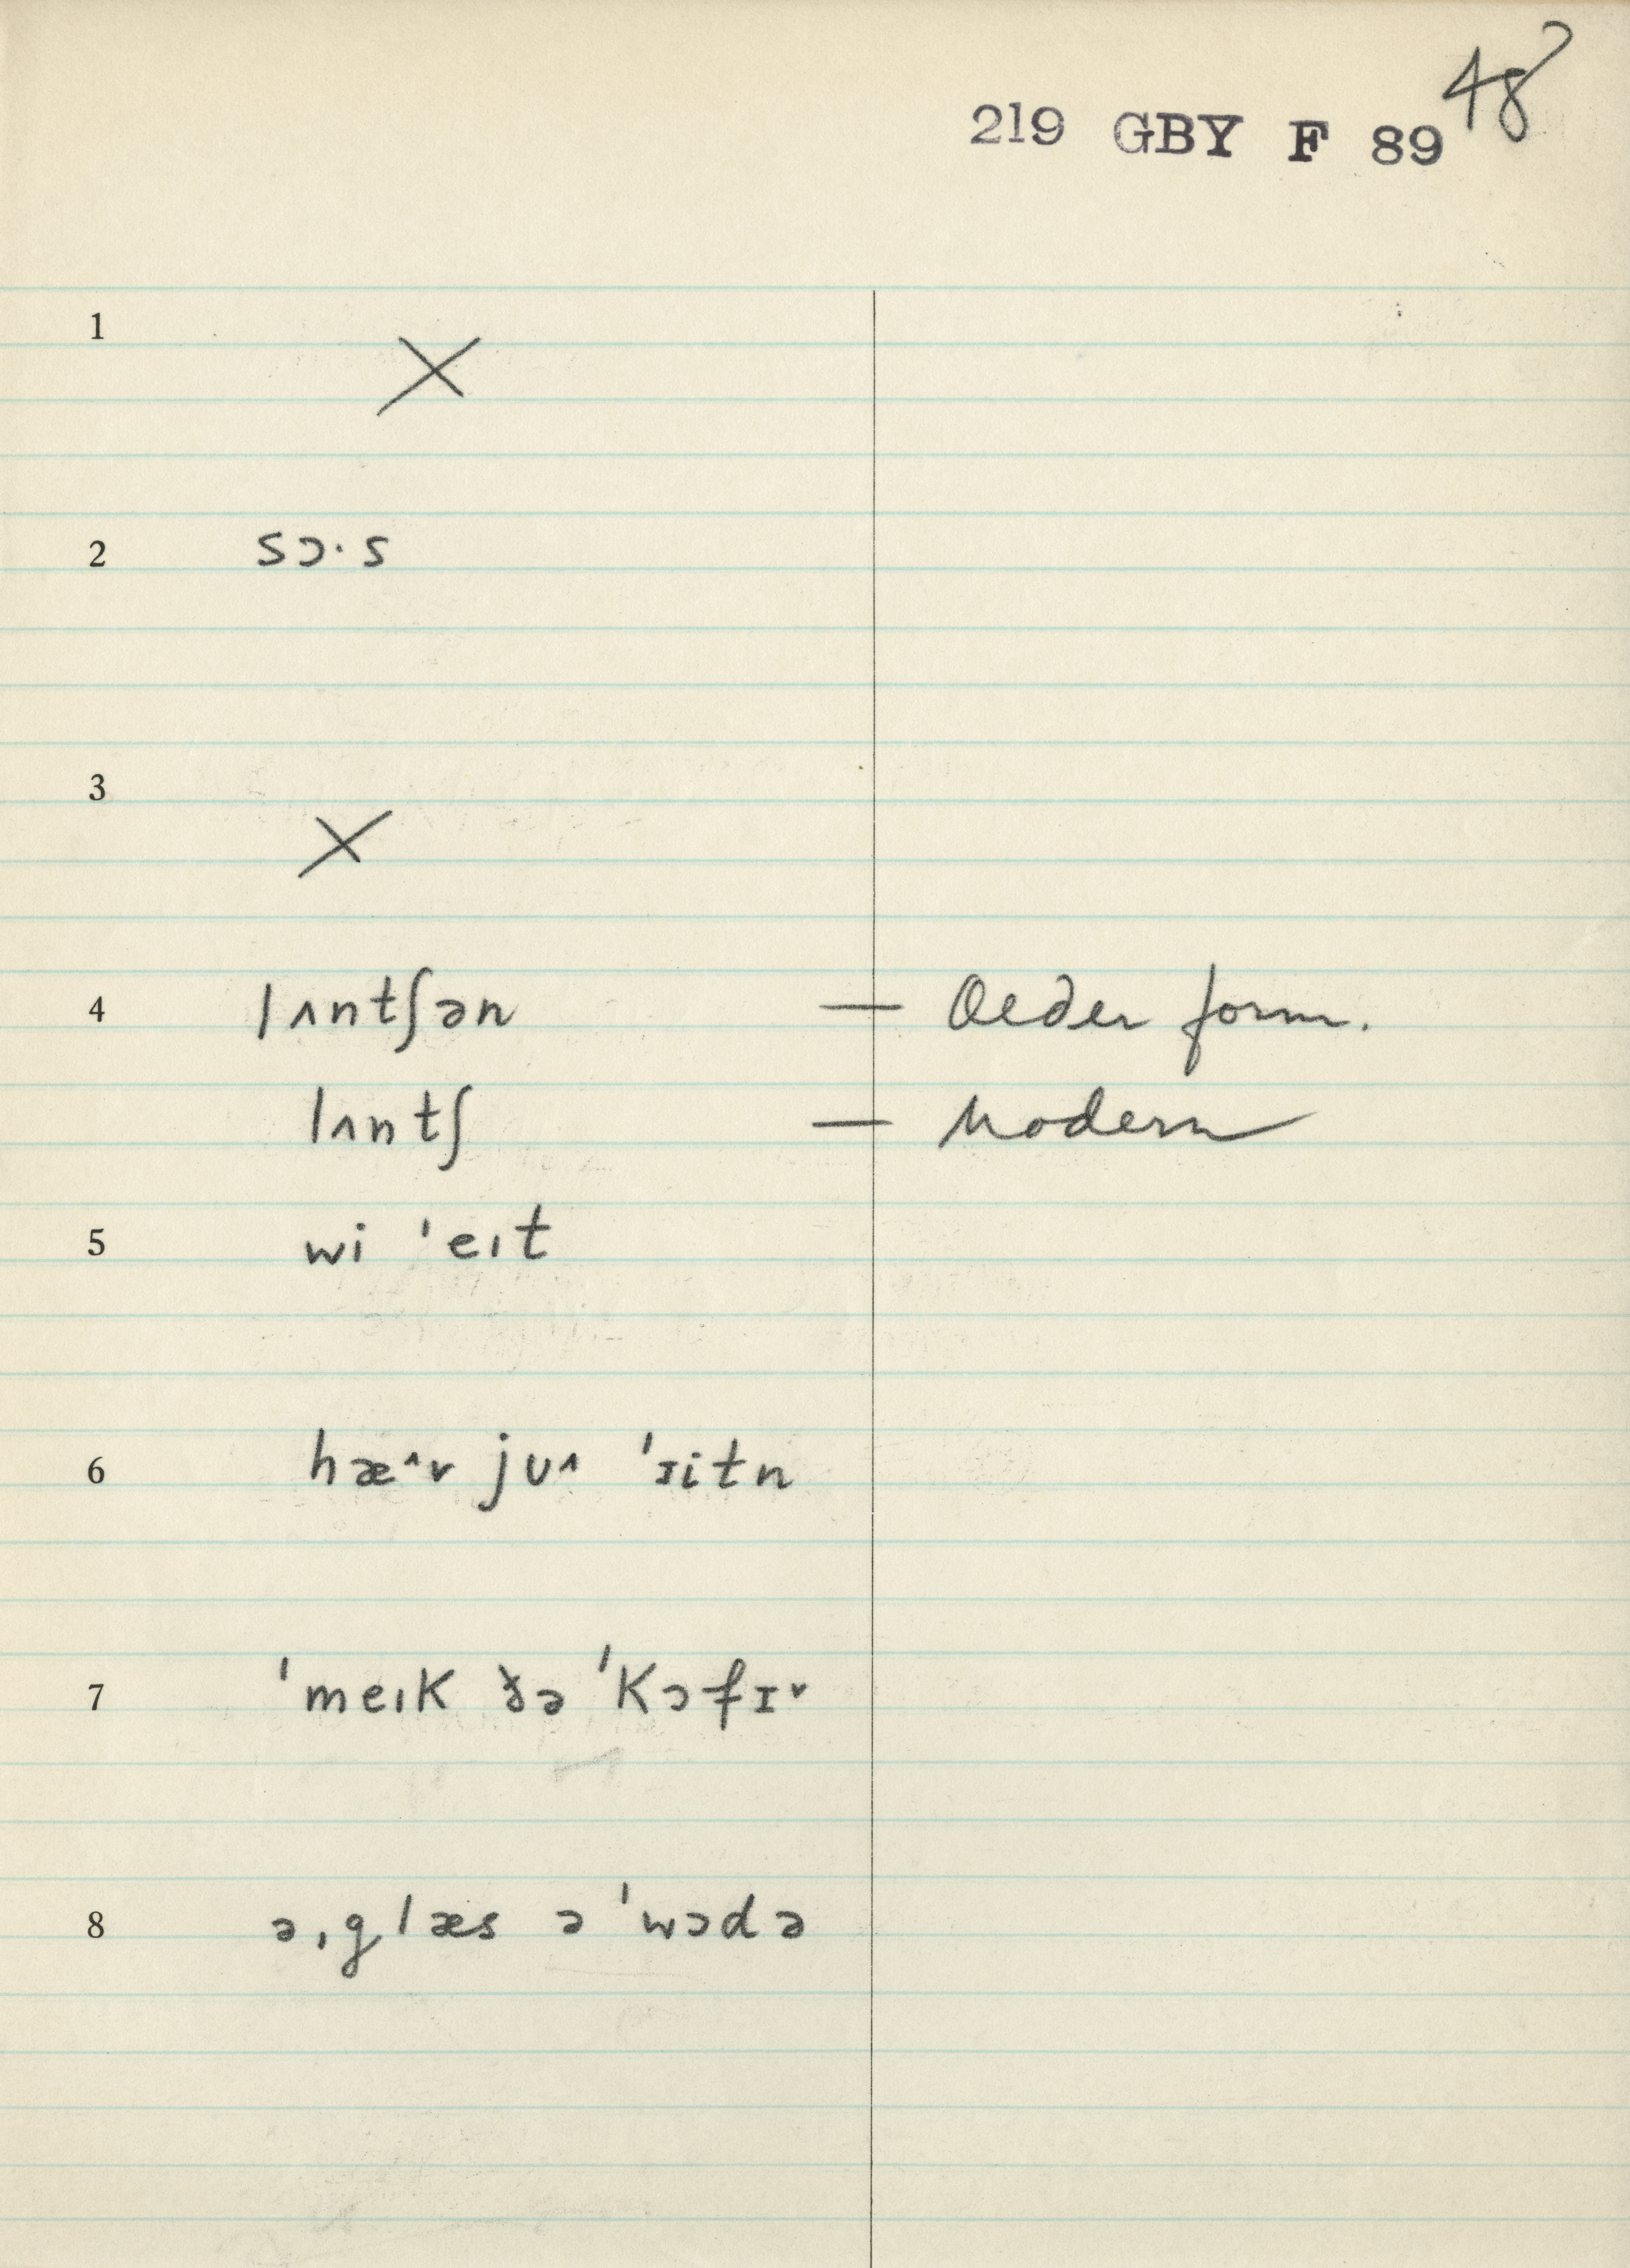 48
219 GBY F 89
1 ×
2 sɔ·s
3 ×
4 lʌntʃən — Older form.
lʌntʃ — Modern
5 wi ˈeɪt
6 hæ˄v jʊ˄ ˈɪitn
7 ˈmeɪk ðə ˈkɔfɪ˅
8 ə ˌglæs ə ˈwɔdə